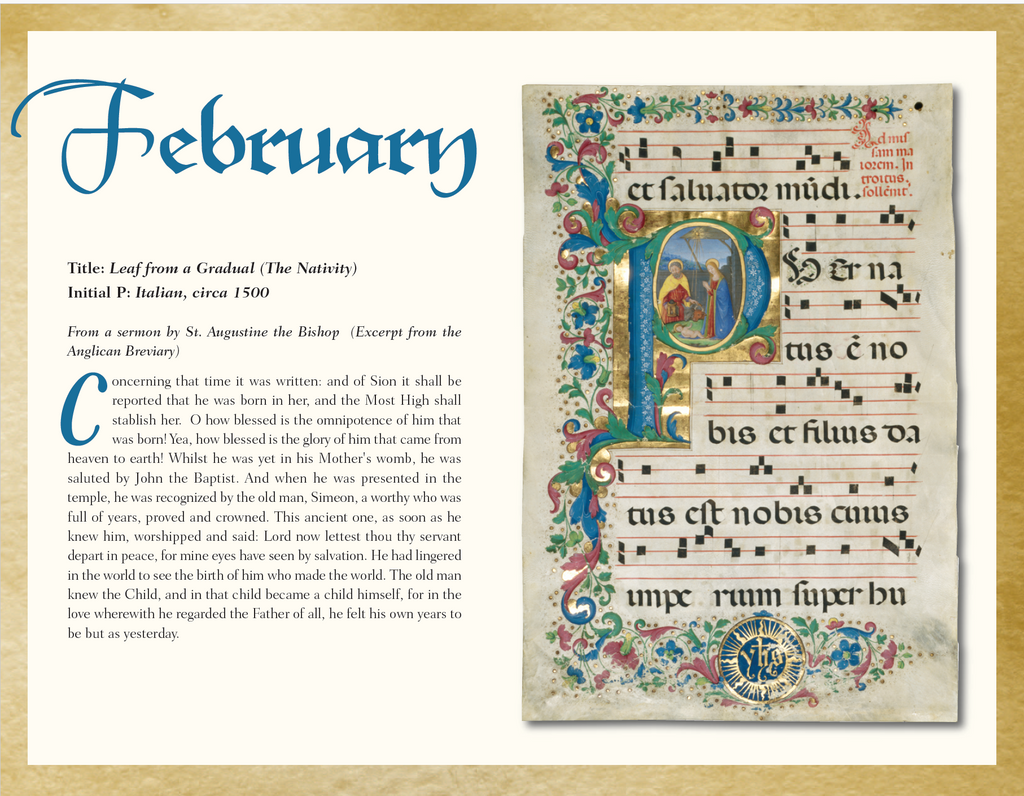 February
Title: Leaf from a Gradual (The Nativity)
Initial P: Italian, circa 1500
From a sermon by St. Augustine the Bishop (Excerpt from the
Anglican Breviary)
Concerning that time it was written: and of Sion it shall be
reported that he was born in her, and the Most High shall
stablish her. O how blessed is the omnipotence of him that
was born! Yea, how blessed is the glory of him that came from
heaven to earth! Whilst he was yet in his Mother's womb, he was
saluted by John the Baptist. And when he was presented in the
temple, he was recognized by the old man, Simeon, a worthy who was
full of years, proved and crowned. This ancient one, as soon as he
knew him, worshipped and said: Lord now lettest thou thy servant
depart in peace, for mine eyes have seen by salvation. He had lingered
in the world to see the birth of him who made the world. The old man
knew the Child, and in that child became a child himself, for in the
love wherewith he regarded the Father of all, he felt his own years to
be but as yesterday.
et saluator mũdi.
Ad mis
sam ma
iorem. In
troitus.
sollẽnit'.
P
UER na
tus ẽ no
bis et filius da
tus est nobis cuius
impe rium super hu
yhs